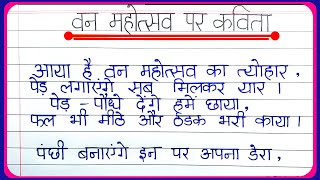 वन महोत्सव पर कविता
आया है वन महोत्सव का त्योहार ,
पेड़ लगाएंगे सब मिलकर यार ।
पेड़ - पौधे देंगे हमें छाया,
फल भी मीठे और ठंडक भरी काया ।
पंछी बनाएंगे इन पर अपना डेरा ,